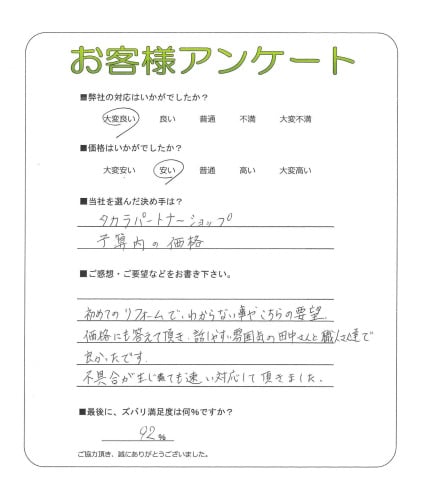 お客様アンケート
■弊社の対応はいかがでしたか？
大変良い 良い 普通 不満 大変不満
■価格はいかがでしたか？
大変安い 安い 普通 高い 大変高い
■当社を選んだ決め手は？
タカラパートナーショップ
予算内の価格
■ご感想・ご要望などをお書き下さい。
初めてのリフォームで、わからない事やこちらの要望、
価格にも答えて頂き、話しやすい雰囲気の田中さんと職人さん達で
良かったです。
不具合が生じても速い対応して頂きました。
■最後に、ズバリ満足度は何%ですか？
92 %
ご協力頂き、誠にありがとうございました。